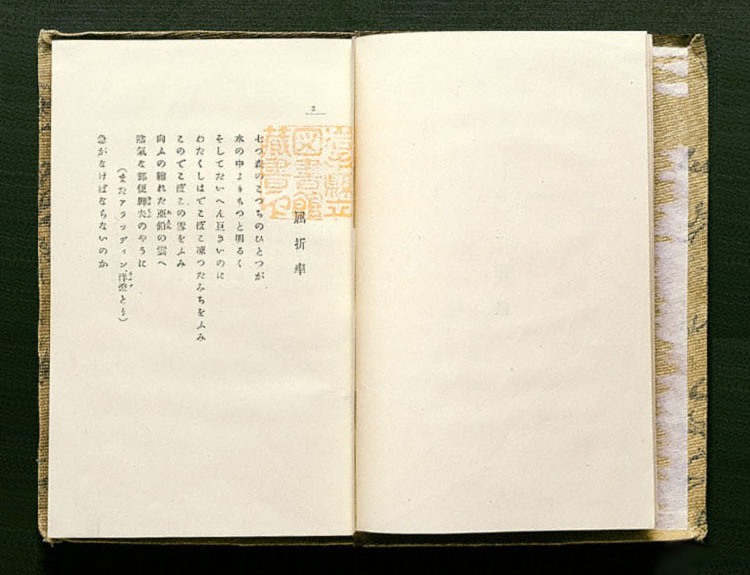 屈折率
七つ森のこつちのひとつが
水の中よりもつと明るく
そしてたいへん巨きいのに
わたくしはでこぼこ凍つたみちをふみ
このでこぼこの雪をふみ
向ふの縮れた亞鉛の雲へ
陰氣な郵便脚夫のやうに
(またアラツディン 洋燈とり)
急がなけばならないのか
圖書館
藏書印